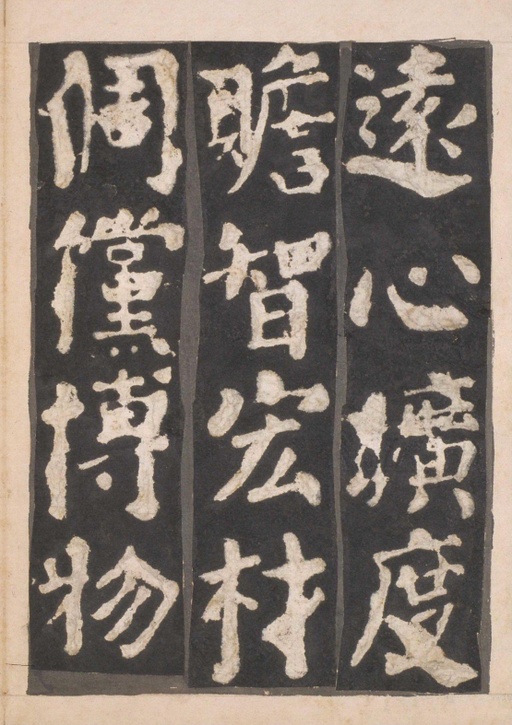 遠心曠度
贍智宏材
倜儻博物